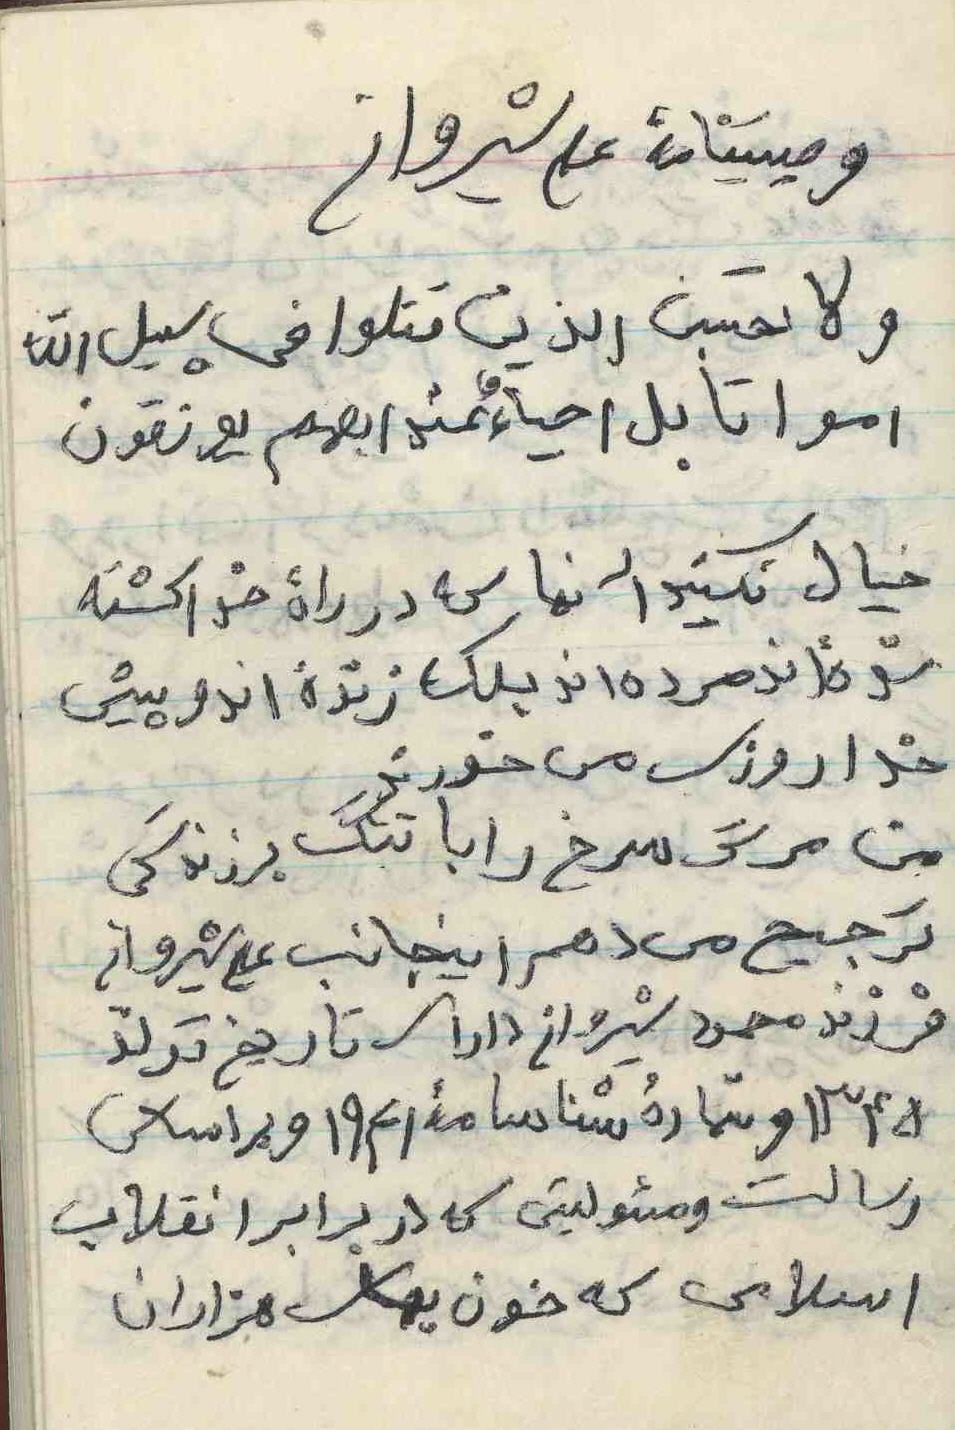 وصیتنامهٔ علی شیروانی
ولا تحسبن الذین قتلوا فی سبیل الله
امواتا بل احیاءٌ عند ربهم یرزقون
خیال نکنید آنهایی که در راه خدا کشته
شده اند مرده اند بلکه زنده اند و پیش
خدا روزی می خورند
من مرگ سرخ را با تفنگ بر زندگی
ترجیح می دهم اینجانب علی شیروانی
فرزند محمود شیروانی دارای تاریخ تولد
۱۳۴۸ و شمارهٔ شناسنامهٔ ۱۹۴۱ و بر اساس
رسالت و مسئولیتی که در برابر انقلاب
اسلامی که خون بهای هزاران